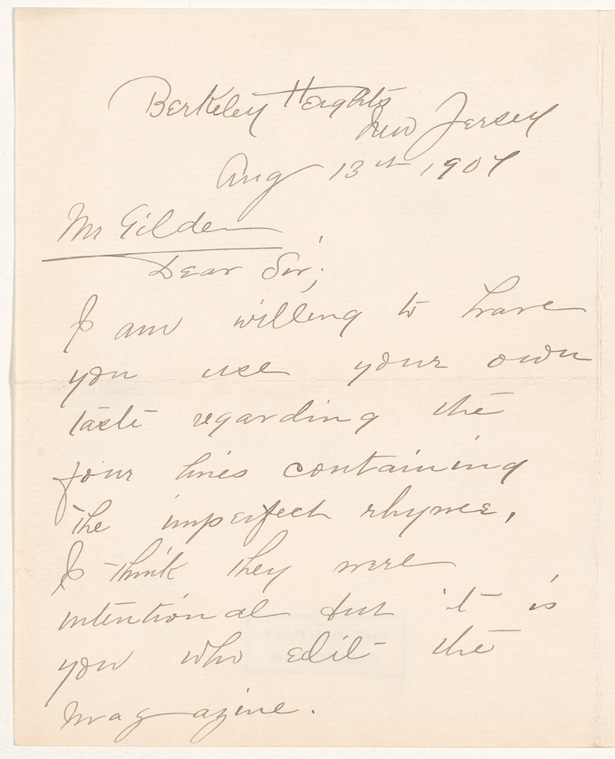 Berkeley Heights
New Jersey
Aug 13th 1907
Mr Gilder
Dear Sir;
I am willing to have
you use your own
taste regarding the
four lines containing
the imperfect rhyme,
I think they were
intentional but it is
you who edit the
magazine.